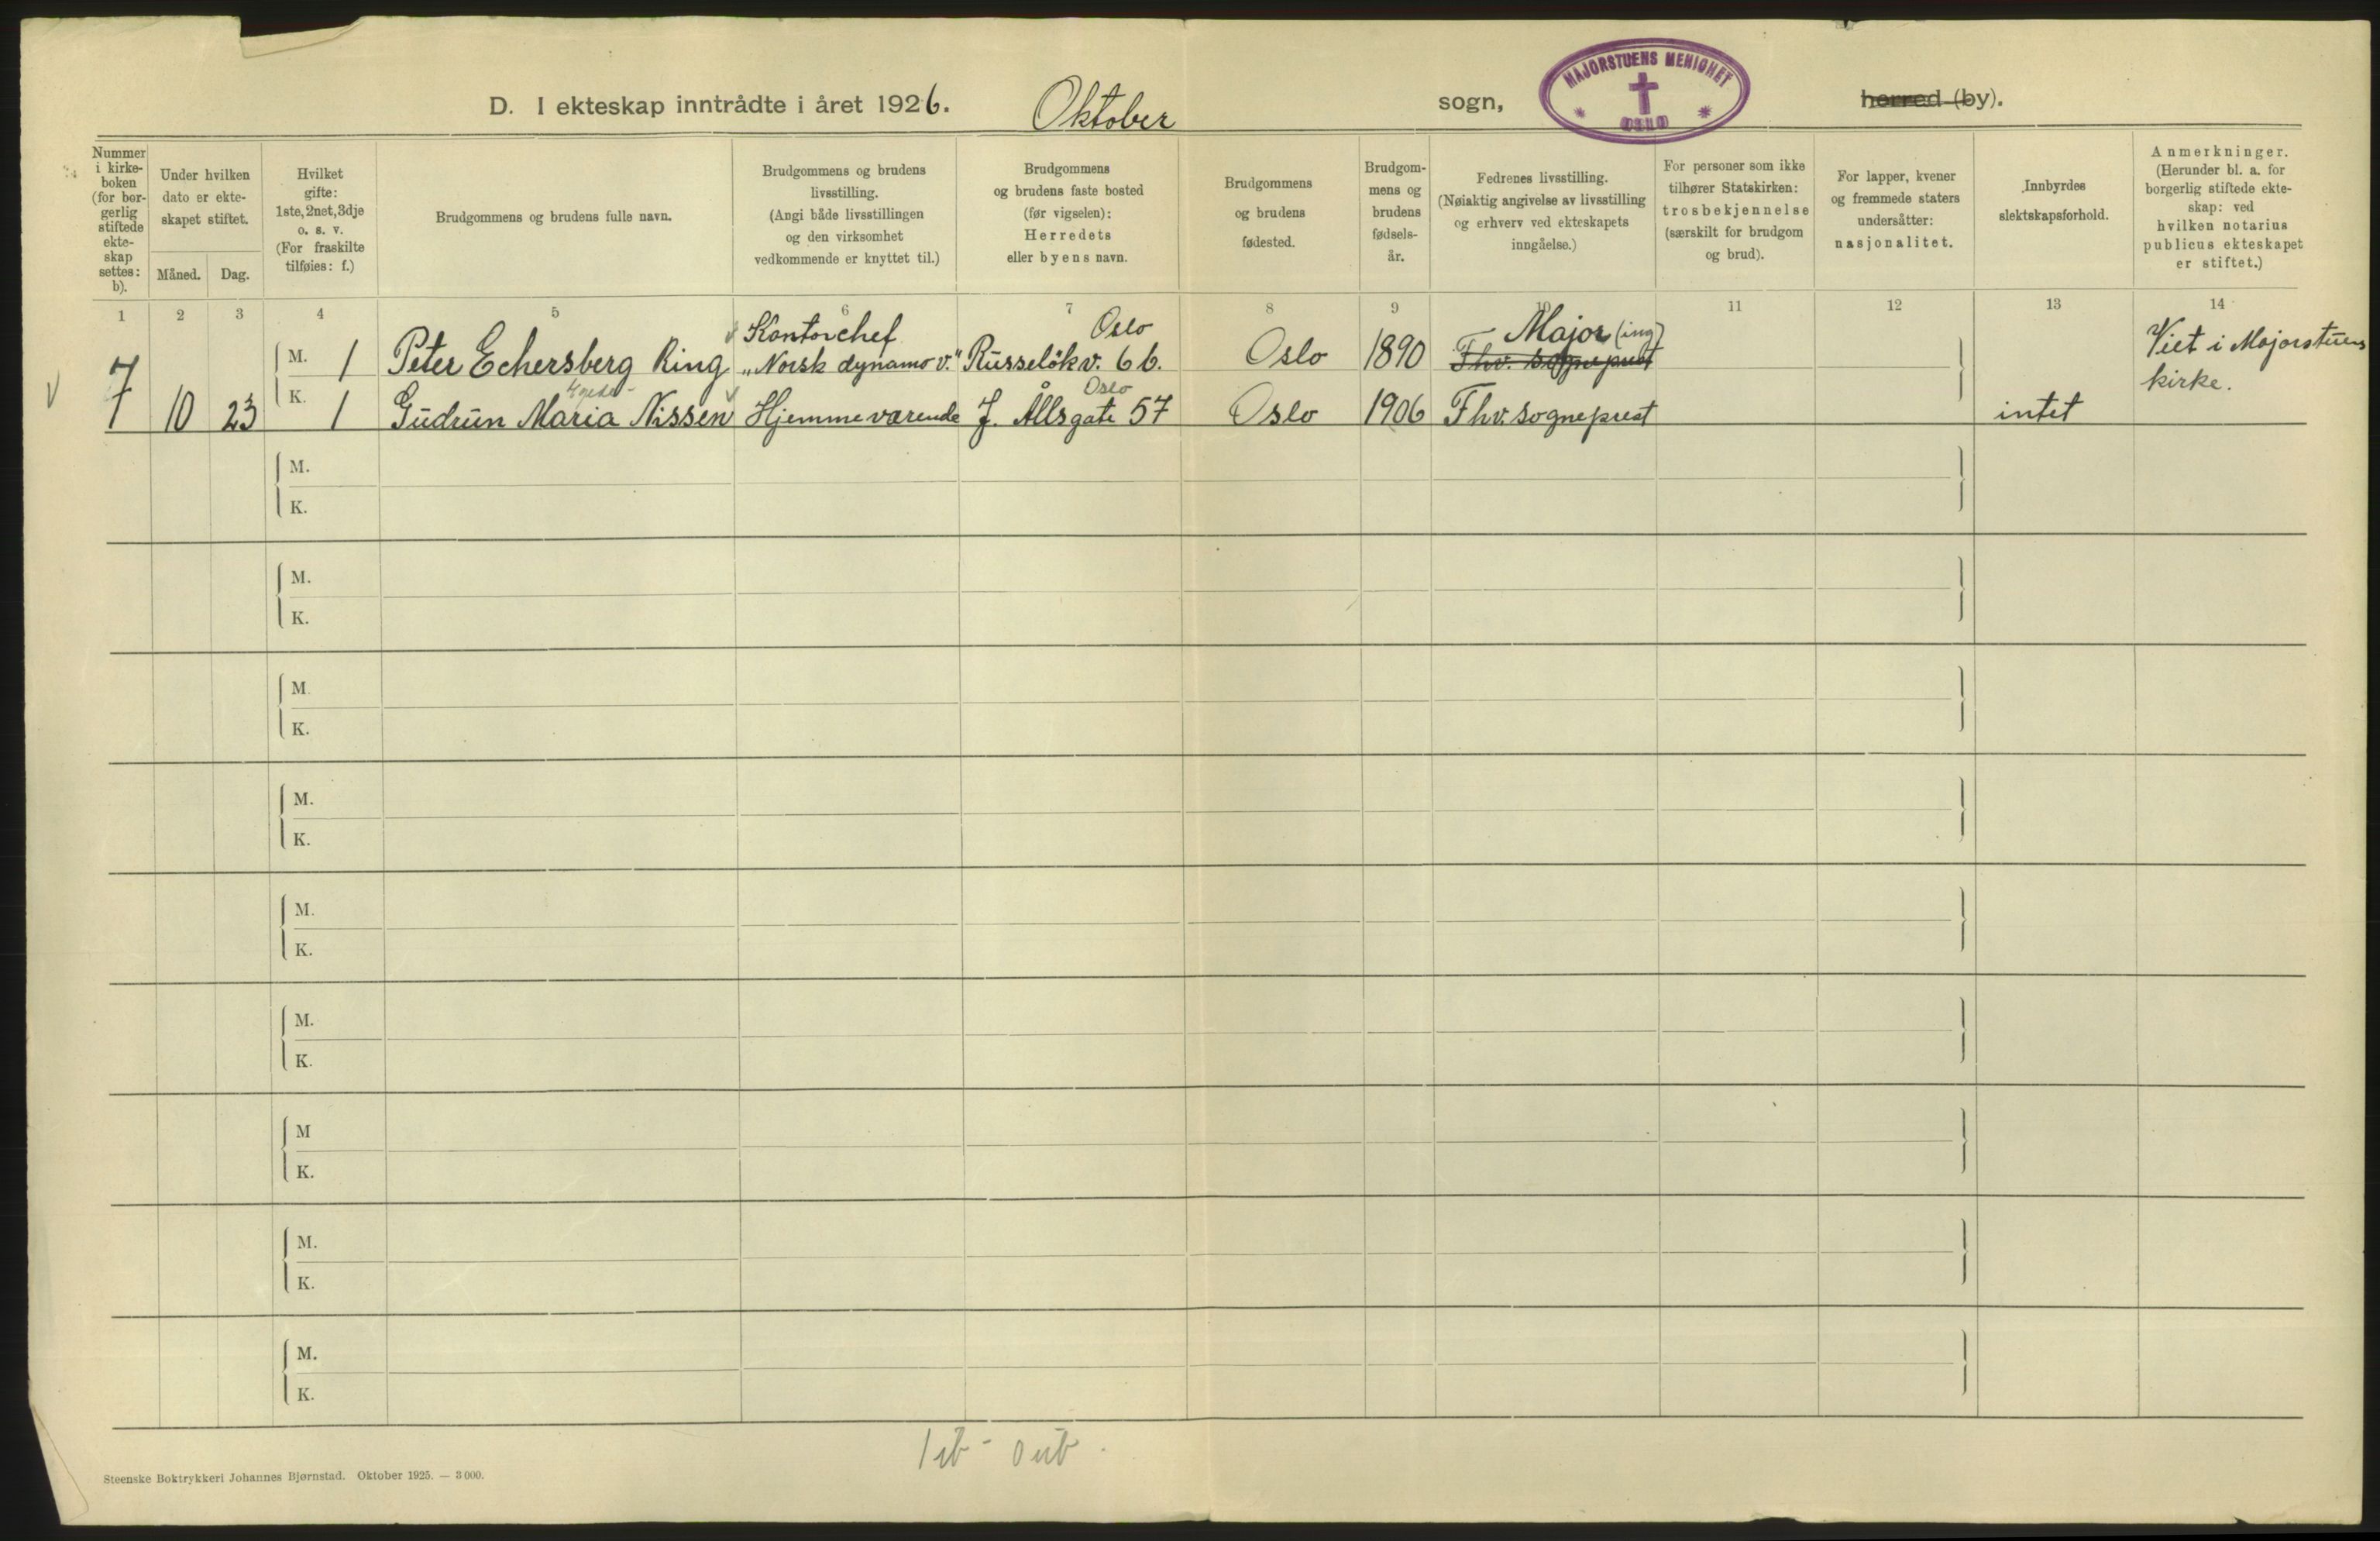 D. I ekteskap inntrådte i året 1926. Oktober sogn, MAJORSTUENS MENIGHET OSLO herred (by).
Nummer i kirke-
boken
(for bor-
gerlig
stiftede
ekte-
skap
settes:
b).
Under hvilken
dato er ekte-
skapet stiftet.
Måned. Dag.
Hvilket
gifte:
1ste, 2net, 3dje
o. s. v.
(For fraskilte
tilføies: f.)
Brudgommens og brudens fulle navn.
Brudgommens og brudens
livsstilling.
(Angi både livsstillingen
og den virksomhet
vedkommende er knyttet til.)
Brudgommens
og brudens faste bosted
(før vigselen):
Herredets
eller byens navn.
Brudgommens
og brudens
fødested.
Brudgom-
mens og
brudens
fødsels-
år.
Fedrenes livsstilling.
(Nøiaktig angivelse av livsstilling
og erhverv ved ekteskapets
inngåelse.)
For personer som ikke
tilhører Statskirken:
trosbekjennelse
(særskilt for brudgom
og brud).
For lapper, kvener
og fremmede staters
undersåtter:
nasjonalitet.
Innbyrdes
slektskapsforhold.
Anmerkninger.
(Herunder bl. a. for
borgerlig stiftede ekte-
skap: ved
hvilken notarius
publicus ekteskapet
er stiftet.)
1 2 3 4 5 6 7 8 9 10 11 12 13 14
Kontorchef Oslo Major (ing) Viet i Majorstuens
7 M. 1 Peter Echersberg Ring „Norsk dynamo v." Russeløkv. 6 b. Oslo 1890 Fhv. sogneprest
Oslo kirke.
7 10 23 K. 1 Gudrun Maria Nissen Hjemmeværende J. Ållsgate 57 Oslo 1906 Fhv. sogneprest intet
M.
K.
M.
K.
M.
K.
M.
K.
M.
K.
M.
K.
M
K.
M.
K.
M.
K.
Steenske Boktrykkeri Johannes Bjørnstad. Oktober 1925. — 3 000.